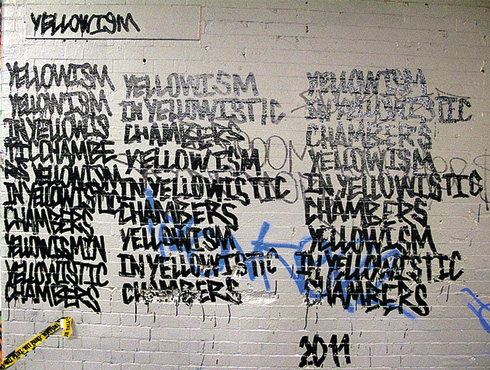 YELLOWISM
YELLOWISM
YELLOWISM
IN YELLOWIS
TIC CHAMBE
RS YELLOWISM
IN YELLOWISTIC
CHAMBERS
YELLOWISM IN
YELLOWISTIC
CHAMBERS
YELLOWISM
IN YELLOWISTIC
CHAMBERS
YELLOWISM
IN YELLOWISTIC
CHAMBERS
YELLOWISM
IN YELLOWISTIC
CHAMBERS
YELLOWISM
IN YELLOWISTIC
CHAMBERS
YELLOWISM
IN YELLOWISTIC
CHAMBERS
YELLOWISM
IN YELLOWISTIC
CHAMBERS
2011